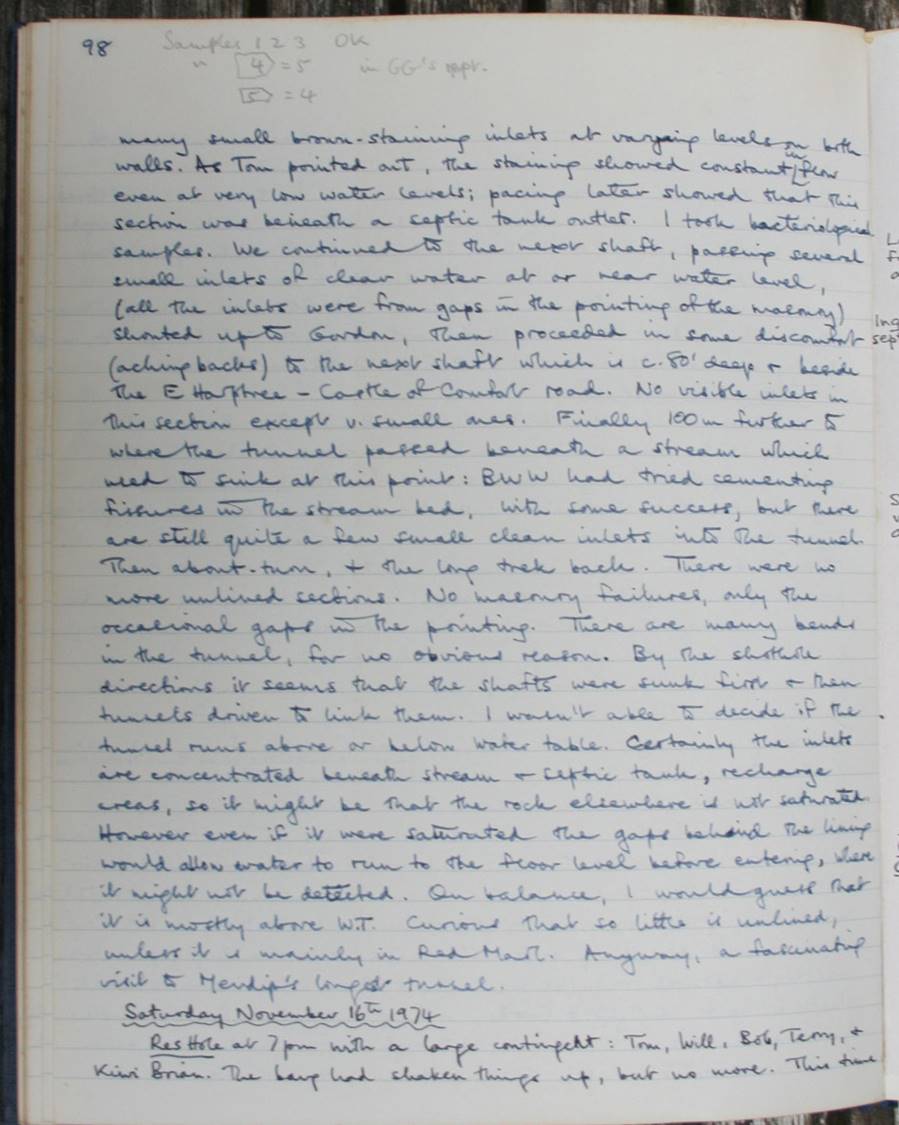 98 Samples 1 2 3 OK
" 4 = 5 in GG's rppt.
5 = 4
many small brown-staining inlets at varying levels on both
walls. As Tom pointed out, the staining showed constant inflow
even at very low water levels; pacing later showed that this
section was beneath a septic tank outlet. I took bacteriological
samples. We continued to the next shaft, passing several
small inlets of clear water at or near water level,
(all the inlets were from gaps in the pointing of the masonry)
shouted up to Gordon, then proceeded in some discomfort
(aching backs) to the next shaft which is c. 80' deep + beside
the E Harptree - Castle of Comfort road. No visible inlets in
this section except v. small ones. Finally 100m further to
where the tunnel passed beneath a stream which
used to sink at this point: BWW had tried cementing
fissures in the stream bed, with some success, but there
are still quite a few small clean inlets into the tunnel.
Then about-turn, + the long trek back. There were no
more unlined sections. No masonry failures, only the
occasional gaps in the pointing. There are many bends
in the tunnel, for no obvious reason. By the shothole
directions it seems that the shafts were sunk first + then
tunnels driven to link them. I wasn't able to decide if the
tunnel runs above or below water table. Certainly the inlets
are concentrated beneath stream + septic tank, recharge
areas, so it might be that the rock elsewhere is not saturated.
However even if it were saturated the gaps behind the lining
would allow water to run to the floor level before entering, where
it might not be detected. On balance, I would guess that
it is mostly above W.T. Curious that so little is unlined,
unless it is mainly in Red Marl. Anyway, a fascinating
visit to Mendip's longest tunnel.
Saturday November 16th 1974
Res Hole at 7pm with a large contingent: Tom, Will, Bob, Terry, +
Kiwi Brian. The bang had shaken things up, but no more. This time